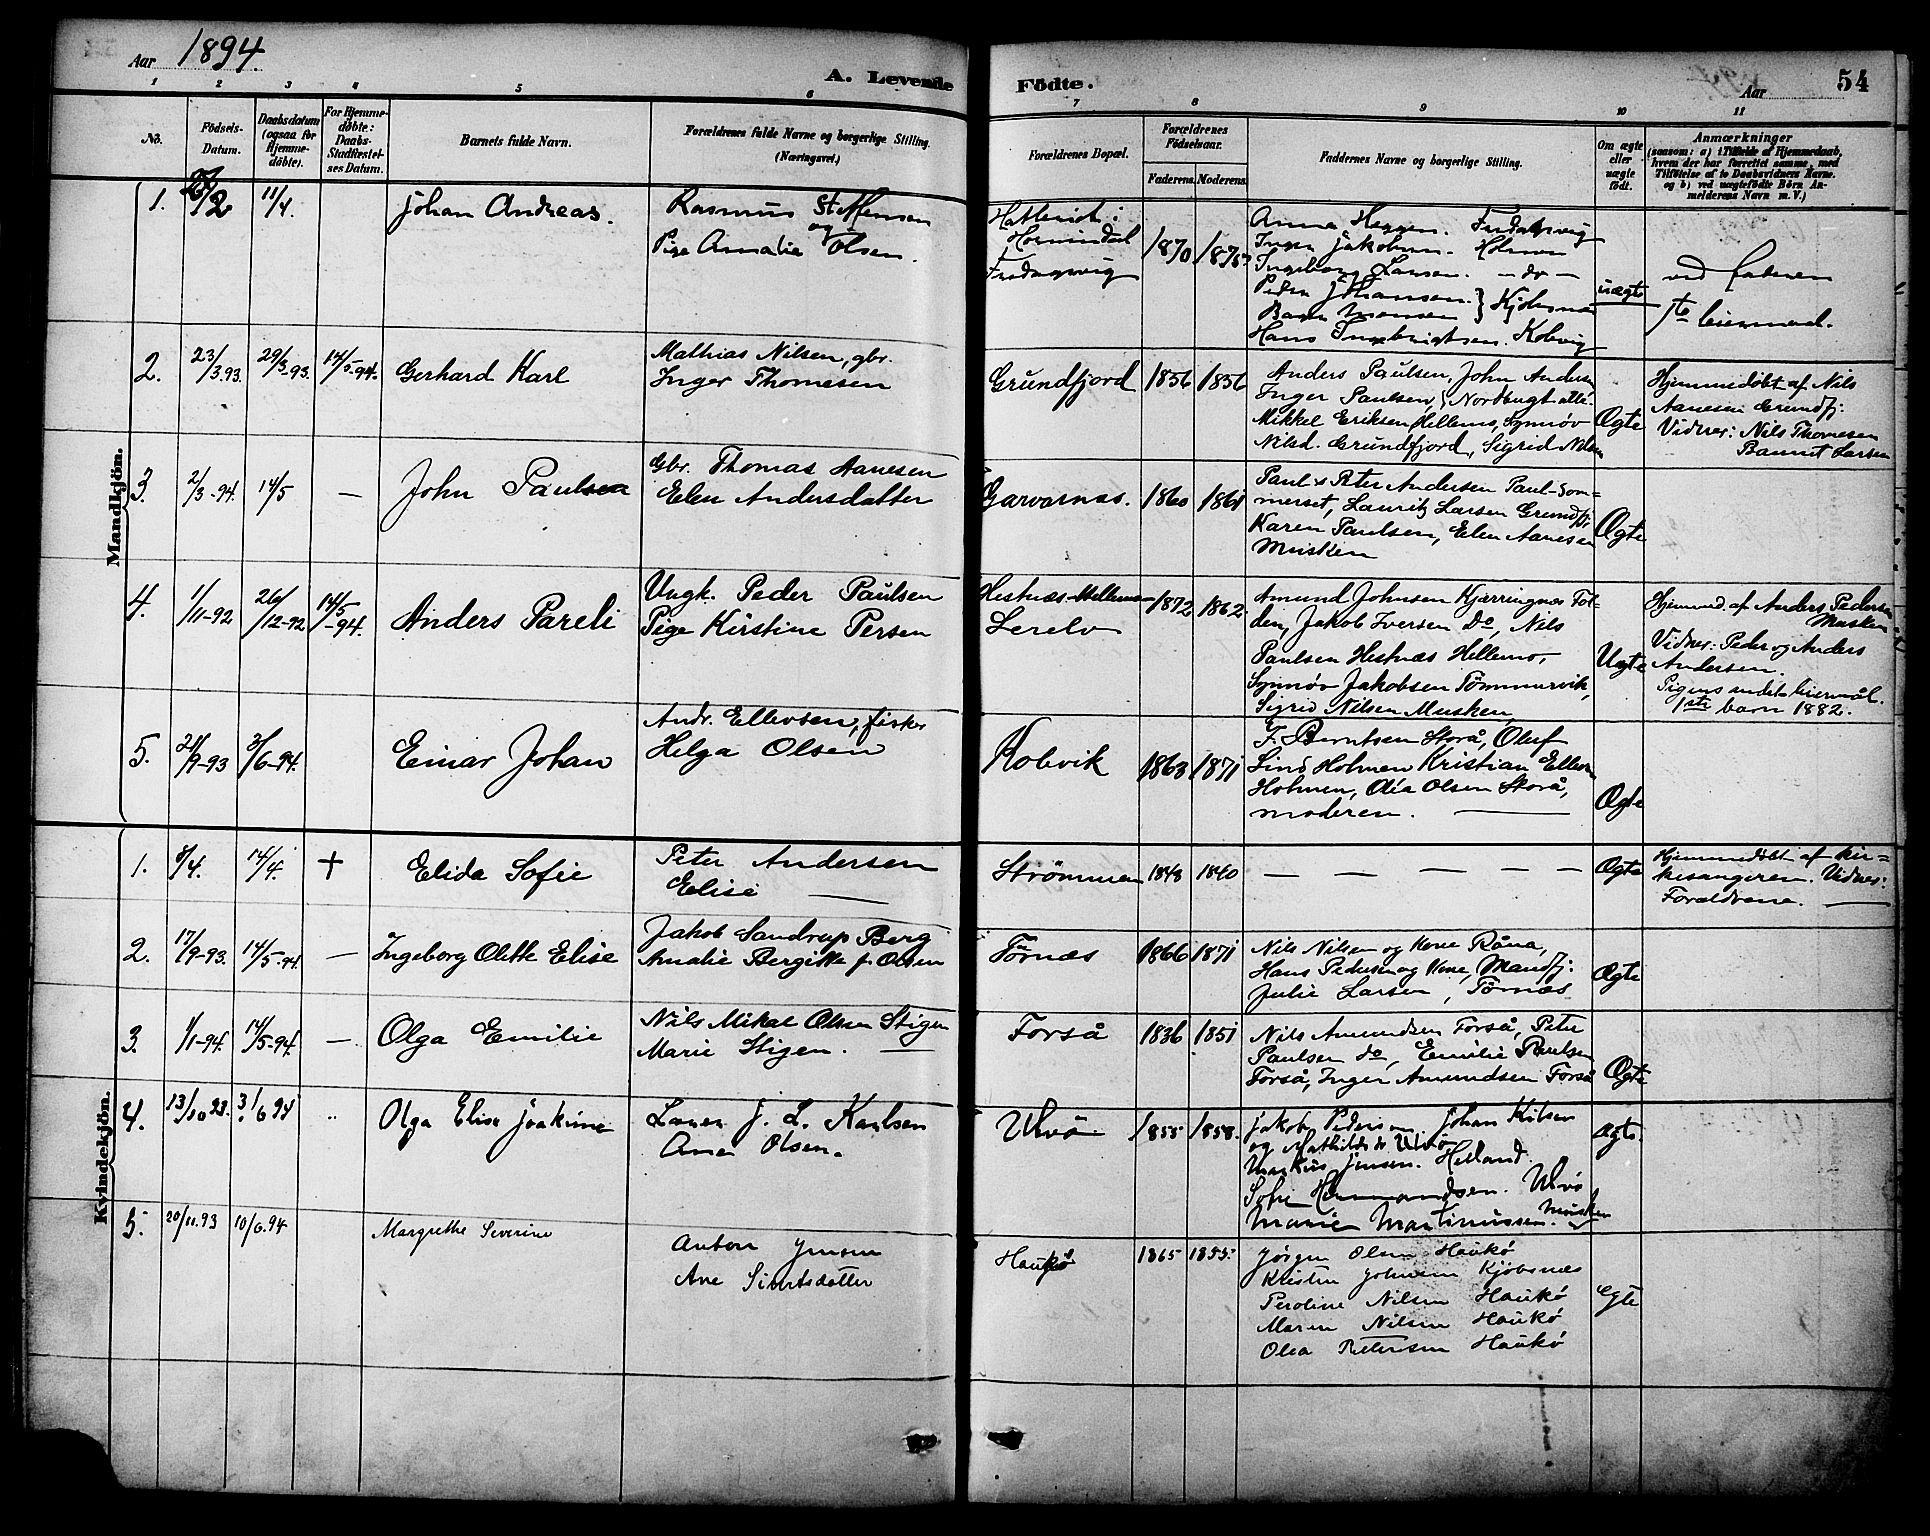 Aar 1894.
A. Levende Födte.
Aar
54
1 2 3 4 5 6 7 8 9 10 11
No.
Födsels-Datum.
Daabsdatum (ogsaa for Hjemmedöbte).
For Hjemmedöbte: Daabs-Stadfæstelses Datum.
Barnets fulde Navn.
Forældrenes fulde Navne og borgerlige Stilling.
(Næringsvei.)
Forældrenes Bopæl.
Forældrenes Födselsaar.
Faderens. Moderens.
Faddernes Navne og borgerlige Stilling.
Om ægte eller uægte födt.
Anmærkninger
(saasom: a) i Tilfælde af Hjemmedaab,
hvem der har forrettet samme, med
Tilföielse af to Daabsvidners Navne.
og b) ved uægtefödte Börn An-
melderens Navn m. V.)
Mandkjön.
1. 11/4. Johan Andreas.
Rasmus Steffensen
og
Pige Amalie Olsen.
Hornindal
1870
Anna Heggen.
Inger Jakobsen. Holmen
Ingeborg Larsen. — do —
Peder Johansen.
Hans Ingebrigtsen. Kobvig
uægte
ved faderen
1ste leiermaal.
2. 23/3.93. 29/3-93. 14/5-94. Gerhard Karl
Mathias Nilsen, gbr.
Inger Thomesen
Grundfjord 1856 1856
Anders Paulsen, John Andersen
Inger Paulsen, Nordbugt alle
Mikkel Eriksen Hellemo, Synnöv
Nilsd. Grundfjord, Sigrid Nilsen
Ægte
Hjemmedöbt af Nils
Aanesen Grundfj:
Vidner: Nils Thomesen
Larsen
3. 2/3-94. 14/5 — John Paulsen
Gbr. Thomas Aanesen
Elen Andersdatter
Garvarnæs. 1860 1861
Paul & Peter Andersen Paul-Som=
merset, Lauritz Larsen Grundfj,
Karen Paulsen, Elen Aanesen
Musken
Ægte
4. 1/11-92 26/12-92 14/5-94. Anders Pareli
Ungk. Peder Paulsen
Pige Kirstine Persen
Hestnæs-Hellemo
Lerelv
1872 1862
Amund Johnsen Kjærringnes Tof-
den, Jakob Iversen Do, Nils
Paulsen Hestnæs Hellemo,
Synnöv Jakobsen Tömmervik,
Sigrid Nilsen Musken
Uægte
Hjemmed. af Anders Pedersen
Musken
Vidner: Peder og Anders
Andersen.
Pigens andet leiermål.
1ste barn 1882.
5. 21/9-93 3/6-94. Einar Johan
Andr. Ellevsen, fisker
Helga Olsen
Kobvik 1863 1871
F. Berntsen Storå, Oluf
Lind Holmen Kristian Ellevsen
Holmen, Olea Olsen Storå,
moderen. —
Ægte
Kvindekjön.
1. 8/4. 14/4. + Elida Sofie
Peter Andersen
Elise —
Strömmen 1848 1840
— — — — —
Ægte
Hjemmedöbt af kir=
kesangeren. Vidner:
Forældrene. —
2. 17/9-93. 14/5-94. — Ingeborg Olette Elise
Jakob Sandrup Berg
Amalie Bergitte f. Olsen
Törnæs 1866 1871
Nils Nilsen og Kone Råna,
Hans Pedersen og Kone, Mandfj:
Julie Larsen, Törnæs
Ægte
3. 1/1-94. 14/5-94. — Olga Emilie
Nils Mikal Olsen Stigen
Marie Stigen. —
Forså 1836 1851
Nils Amundsen Forså, Peter
Paulsen do, Emilie Paulsen
Forså, Inger Amundsen Forså
Ægte
4. 13/10 93. 3/6 94 " Olga Elise Joakime
J. L. Karlsen
Ane Olsen.
Ulvö 1855 1858.
Jakob Pedersen. Johan Kilsen
og Mathilde do Ulvö
Markus Jensen. Helland.
Sofie Hermandsen. Ulvö
Marie Martinussen. Musken
Ægte.
5. 20/11.93 10/6.94 Margrethe Severine
Anton Jensen
Ane Sivertsdatter
Haukö 1865 1855
Jörgen Olsen Haukö
Kristen Johnsen Kjöbsnæs
Peroline Nilsen Haukö
Maren Nilsen Haukö
Olea Pettersen Haukö
Ægte